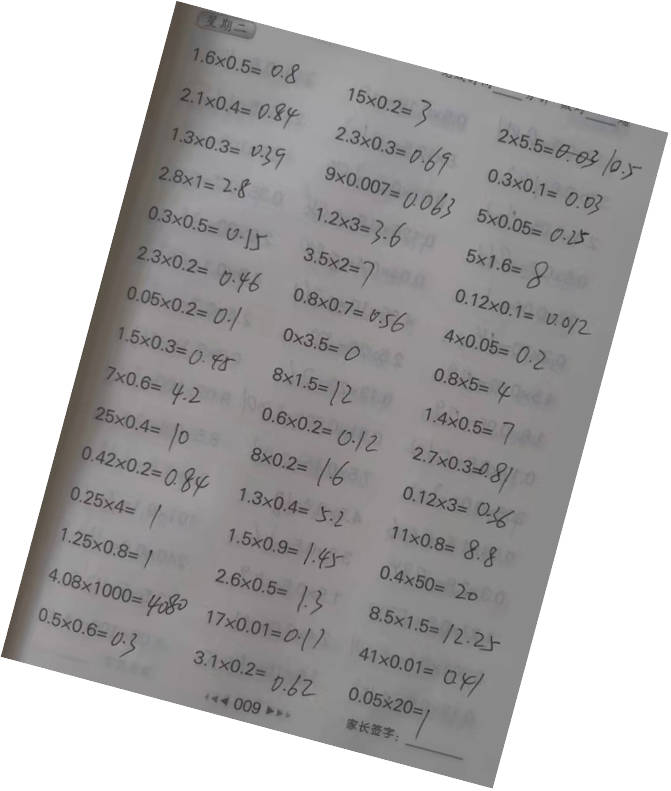 星期二
1.6×0.5= 0.8
2.1×0.4= 0.84
1.3×0.3= 0.39
2.8×1= 2.8
0.3×0.5= 0.15
2.3×0.2= 0.46
0.05×0.2= 0.1
1.5×0.3= 0.45
7×0.6= 4.2
25×0.4= 10
0.42×0.2= 0.84
0.25×4= 1
1.25×0.8= 1
4.08×1000= 4080
0.5×0.6= 0.3
15×0.2= 3
2.3×0.3= 0.69
9×0.007= 0.063
1.2×3= 3.6
3.5×2= 7
0.8×0.7= 0.56
0×3.5= 0
8×1.5= 12
0.6×0.2= 0.12
8×0.2= 1.6
1.3×0.4= 5.2
1.5×0.9= 1.45
2.6×0.5= 1.3
17×0.01= 0.17
3.1×0.2= 0.62
2×5.5= 0.03 10.5
0.3×0.1= 0.03
5×0.05= 0.25
5×1.6= 8
0.12×0.1= 0.012
4×0.05= 0.2
0.8×5= 4
1.4×0.5= 7
2.7×0.3= 0.81
0.12×3= 0.36
11×0.8= 8.8
0.4×50= 20
8.5×1.5= 12.25
41×0.01= 0.41
0.05×20= 1
009
家长签字：